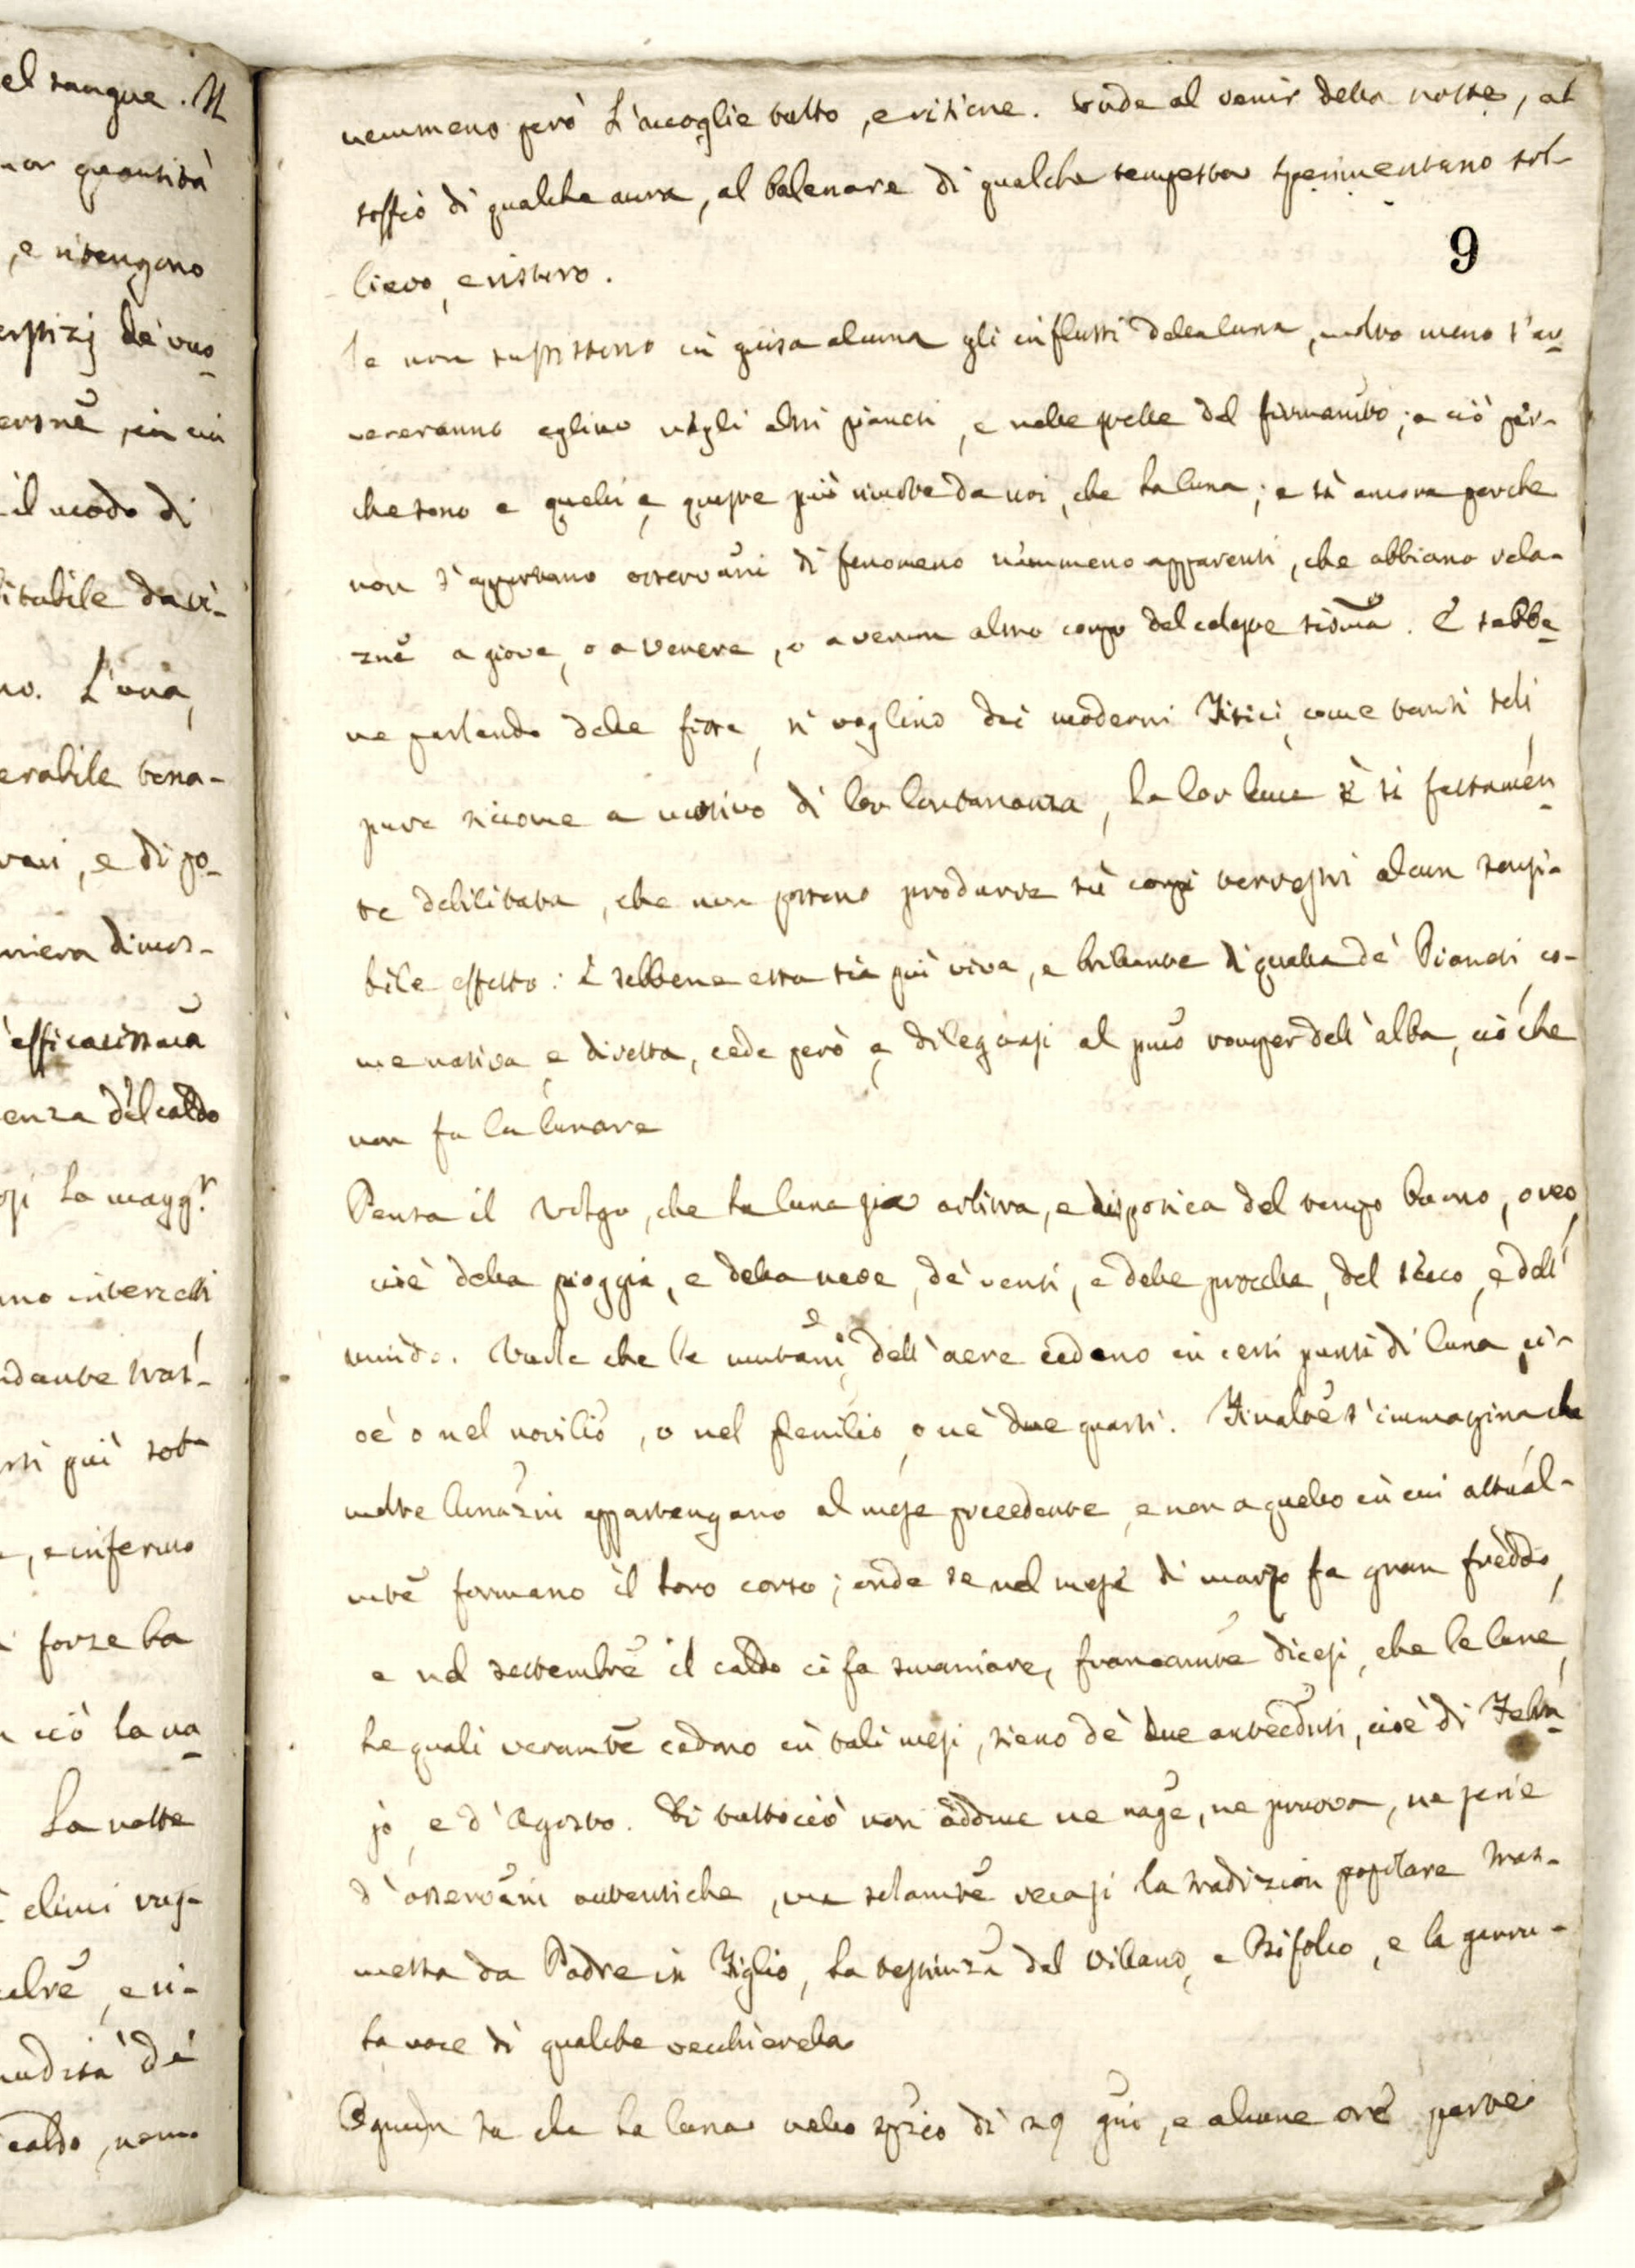 el sangue. Il
or quantità
, e ritengono
il modo di
itabile da vi-
no. L'una,
erabile tena-
vari, e di po-
niera dimos-
efficacissima
enza del caldo
la magg.r
no intervalli
più sot
, e infermo
forze la
ciò la na
La notte
climi
caldo, nem
nemmeno però l'accoglie tutto, e ritiene. Onde al venir della notte, al
soffio di qualche aura, al balenare di qualche tempesta sperimentano sol-
lievo, e ristoro.
9
Se non sussistono in guisa alcuna gli influssi della luna, molto meno s'av-
vereranno eglino negli altri pianeti, e nelle stelle del firmamto; e ciò per-
che sono e quelli e queste più rimote da noi, che la luna; e sì ancora perche
non s'apportano osservaũni di fenomeno nemmeno apparenti, che abbiano rela-
zne a giove, o a Venere, o a verun altro corpo del celeste sistma. E sebbe-
ne parlando delle fisse, si voglino dei moderni Fisici come tanti soli,
pure siccome a motivo di lor lontananza, la lor luce è sì fattamen-
te debilitata, che non possono produrre sù corpi terrestri alcun sensi-
bile effetto: E sebbene essa sia più viva, e brillante di quella de' Pianeti, co-
me nativa e diretta, cede però e dileguasi al pmo romper dell'alba, ciò che
non fa la lunare
Pensa il Volgo, che la luna sia arbitra, e dispotica del tempo buono, o reo,
cioè della pioggia, e della neve, de' venti, e delle procelle, del secco, e dell'
umido. Vuole che le mutani dell'aere cedano in certi punti di luna, ci-
oè o nel novilio, o nel plenilio, o ne' due quarti. Finalte s'immagina che
molte lunazni appartengano al mese precedente, e non a quello in cui attual-
mte formano il loro corso; onde se nel mese di marzo fa gran freddo,
e nel settembre il caldo ci fa smaniare, francamte dicesi, che le lune,
le quali veramte cadono in tali mesi, sieno de' due antecedti, cioè di Febra-
jo, e d'Agosto. Di tuttociò non adduce ne rage, ne pruova, ne serie
d'osservani autentiche, ma solamte recasi la tradizion popolare tras-
messa da Padre in Figlio, la testimza del Villano, e Bifolco, e la garru-
la voce di qualche vecchierella
Ognun sa che la luna nello spzio di 29 gni, e alcune ore parte